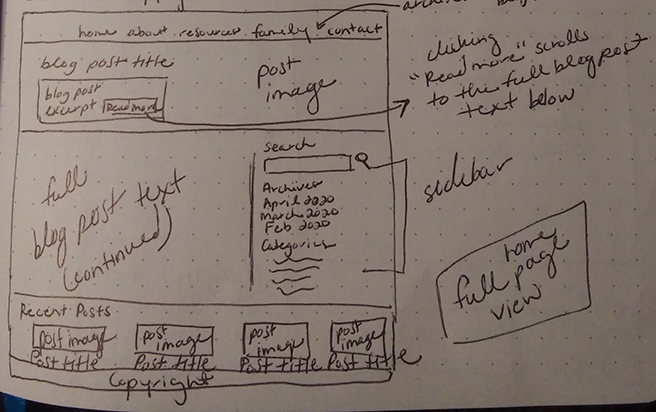 home about resources family contact
blog post title
blog post
excerpt Read more
post
image
clicking
"Read more" scrolls
to the full blog post
text below
full
blog post text
(continued)
Search
Archives
April 2020
March 2020
Feb 2020
Categories
sidebar
home
full page
view
Recent Posts
post image
post image
post image
post image
Post title
Post title
Post title
Post title
Copyright